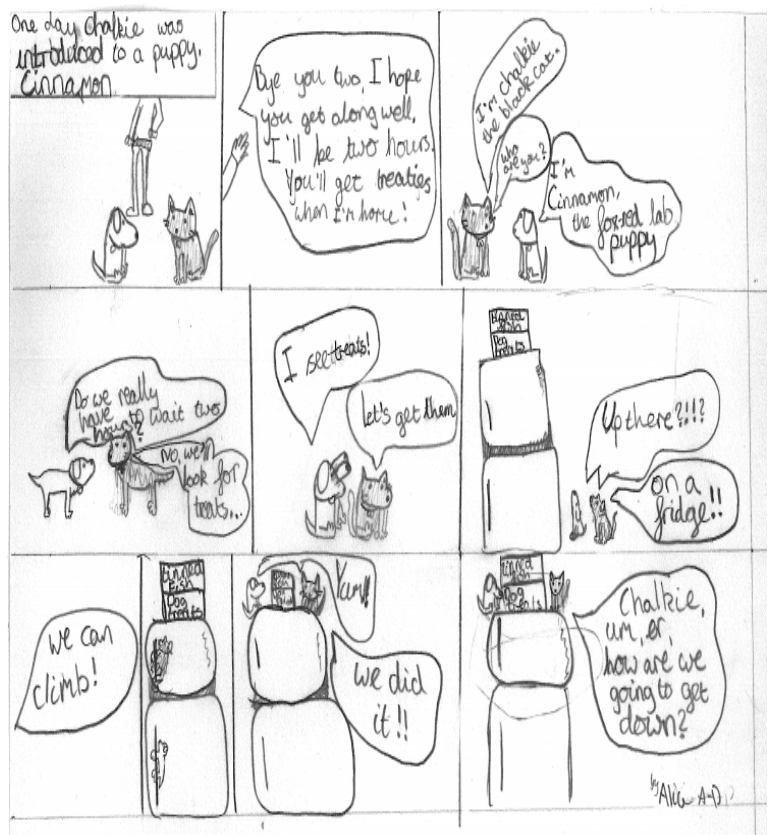 One day Chalkie was
introduced to a puppy.
Cinnamon
Bye you two, I hope
you get along well,
I'll be two hours.
You'll get treaties
when I'm home!
I'm Chalkie
the black cat.
who
are you?
I'm
Cinnamon,
the fox-red lab
puppy
Do we really
have to wait two
hours?
No, we'll
look for
treats...
I see treats!
Let's get them
Tinned
fish
Dog
treats
Up there?!!?
on a
fridge!!
we can
climb!
Tinned
fish
Dog
treats
Yum!!
we did
it!!
Tinned
fish
Dog
treats
Chalkie,
um, er,
how are we
going to get
down?
by Alice A-D